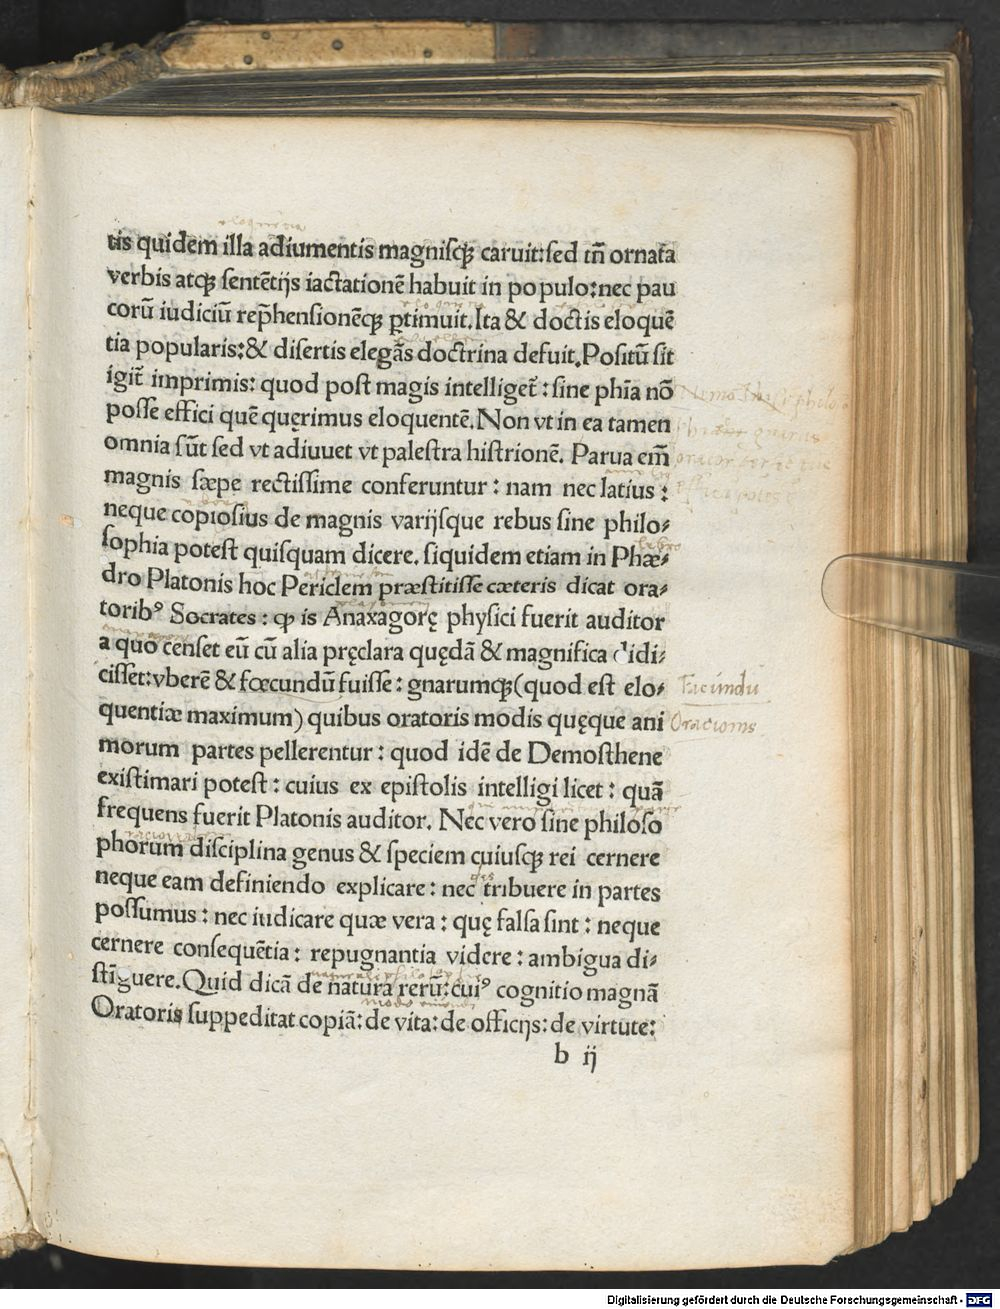 tis quidem illa adiumentis magnisqꝫ caruit:sed tñ ornata
verbis atqꝫ sentētijs iactationē habuit in populo:nec pau
corū iudiciū rep̄hensionēqꝫ ꝑtimuit.Ita & doctis eloquē
tia popularis:& disertis elegās doctrina defuit.Positū sit
igit᷑ imprimis: quod post magis intelliget᷑ : sine phīa nō
posse effici quē quęrimus eloquentē.Non vt in ea tamen
omnia sūt sed vt adiuuet vt palestra histrionē. Parua em̄
magnis sæpe rectissime conferuntur : nam nec latius :
neque copiosius de magnis varijsque rebus sine philo⸗
sophia potest quisquam dicere. siquidem etiam in Phæ⸗
dro Platonis hoc Periclem præstitisse cæteris dicat ora⸗
toribꝰ Socrates : ꝙ is Anaxagorę physici fuerit auditor
a quo censet eū cū alia pręclara quędā & magnifica didi⸗
cisset:vberē & fœcundū fuisse : gnarumqꝫ(quod est elo⸗
Facundū
quentiæ maximum) quibus oratoris modis quęque ani
Oracionis
morum partes pellerentur : quod idē de Demosthene
existimari potest : cuius ex epistolis intelligi licet : quā
frequens fuerit Platonis auditor. Nec vero sine philoso
phorum disciplina genus & speciem cuiusqꝫ rei cernere
neque eam definiendo explicare : nec tribuere in partes
possumus : nec iudicare quæ vera : quę falsa sint : neque
cernere consequētia : repugnantia videre : ambigua di⸗
stīguere.Quid dicā de natura rerū:cuiꝰ cognitio magnā
Oratoris suppeditat copiā: de vita: de officijs: de virtute:
b ij
Digitalisierung gefördert durch die Deutsche Forschungsgemeinschaft - DFG